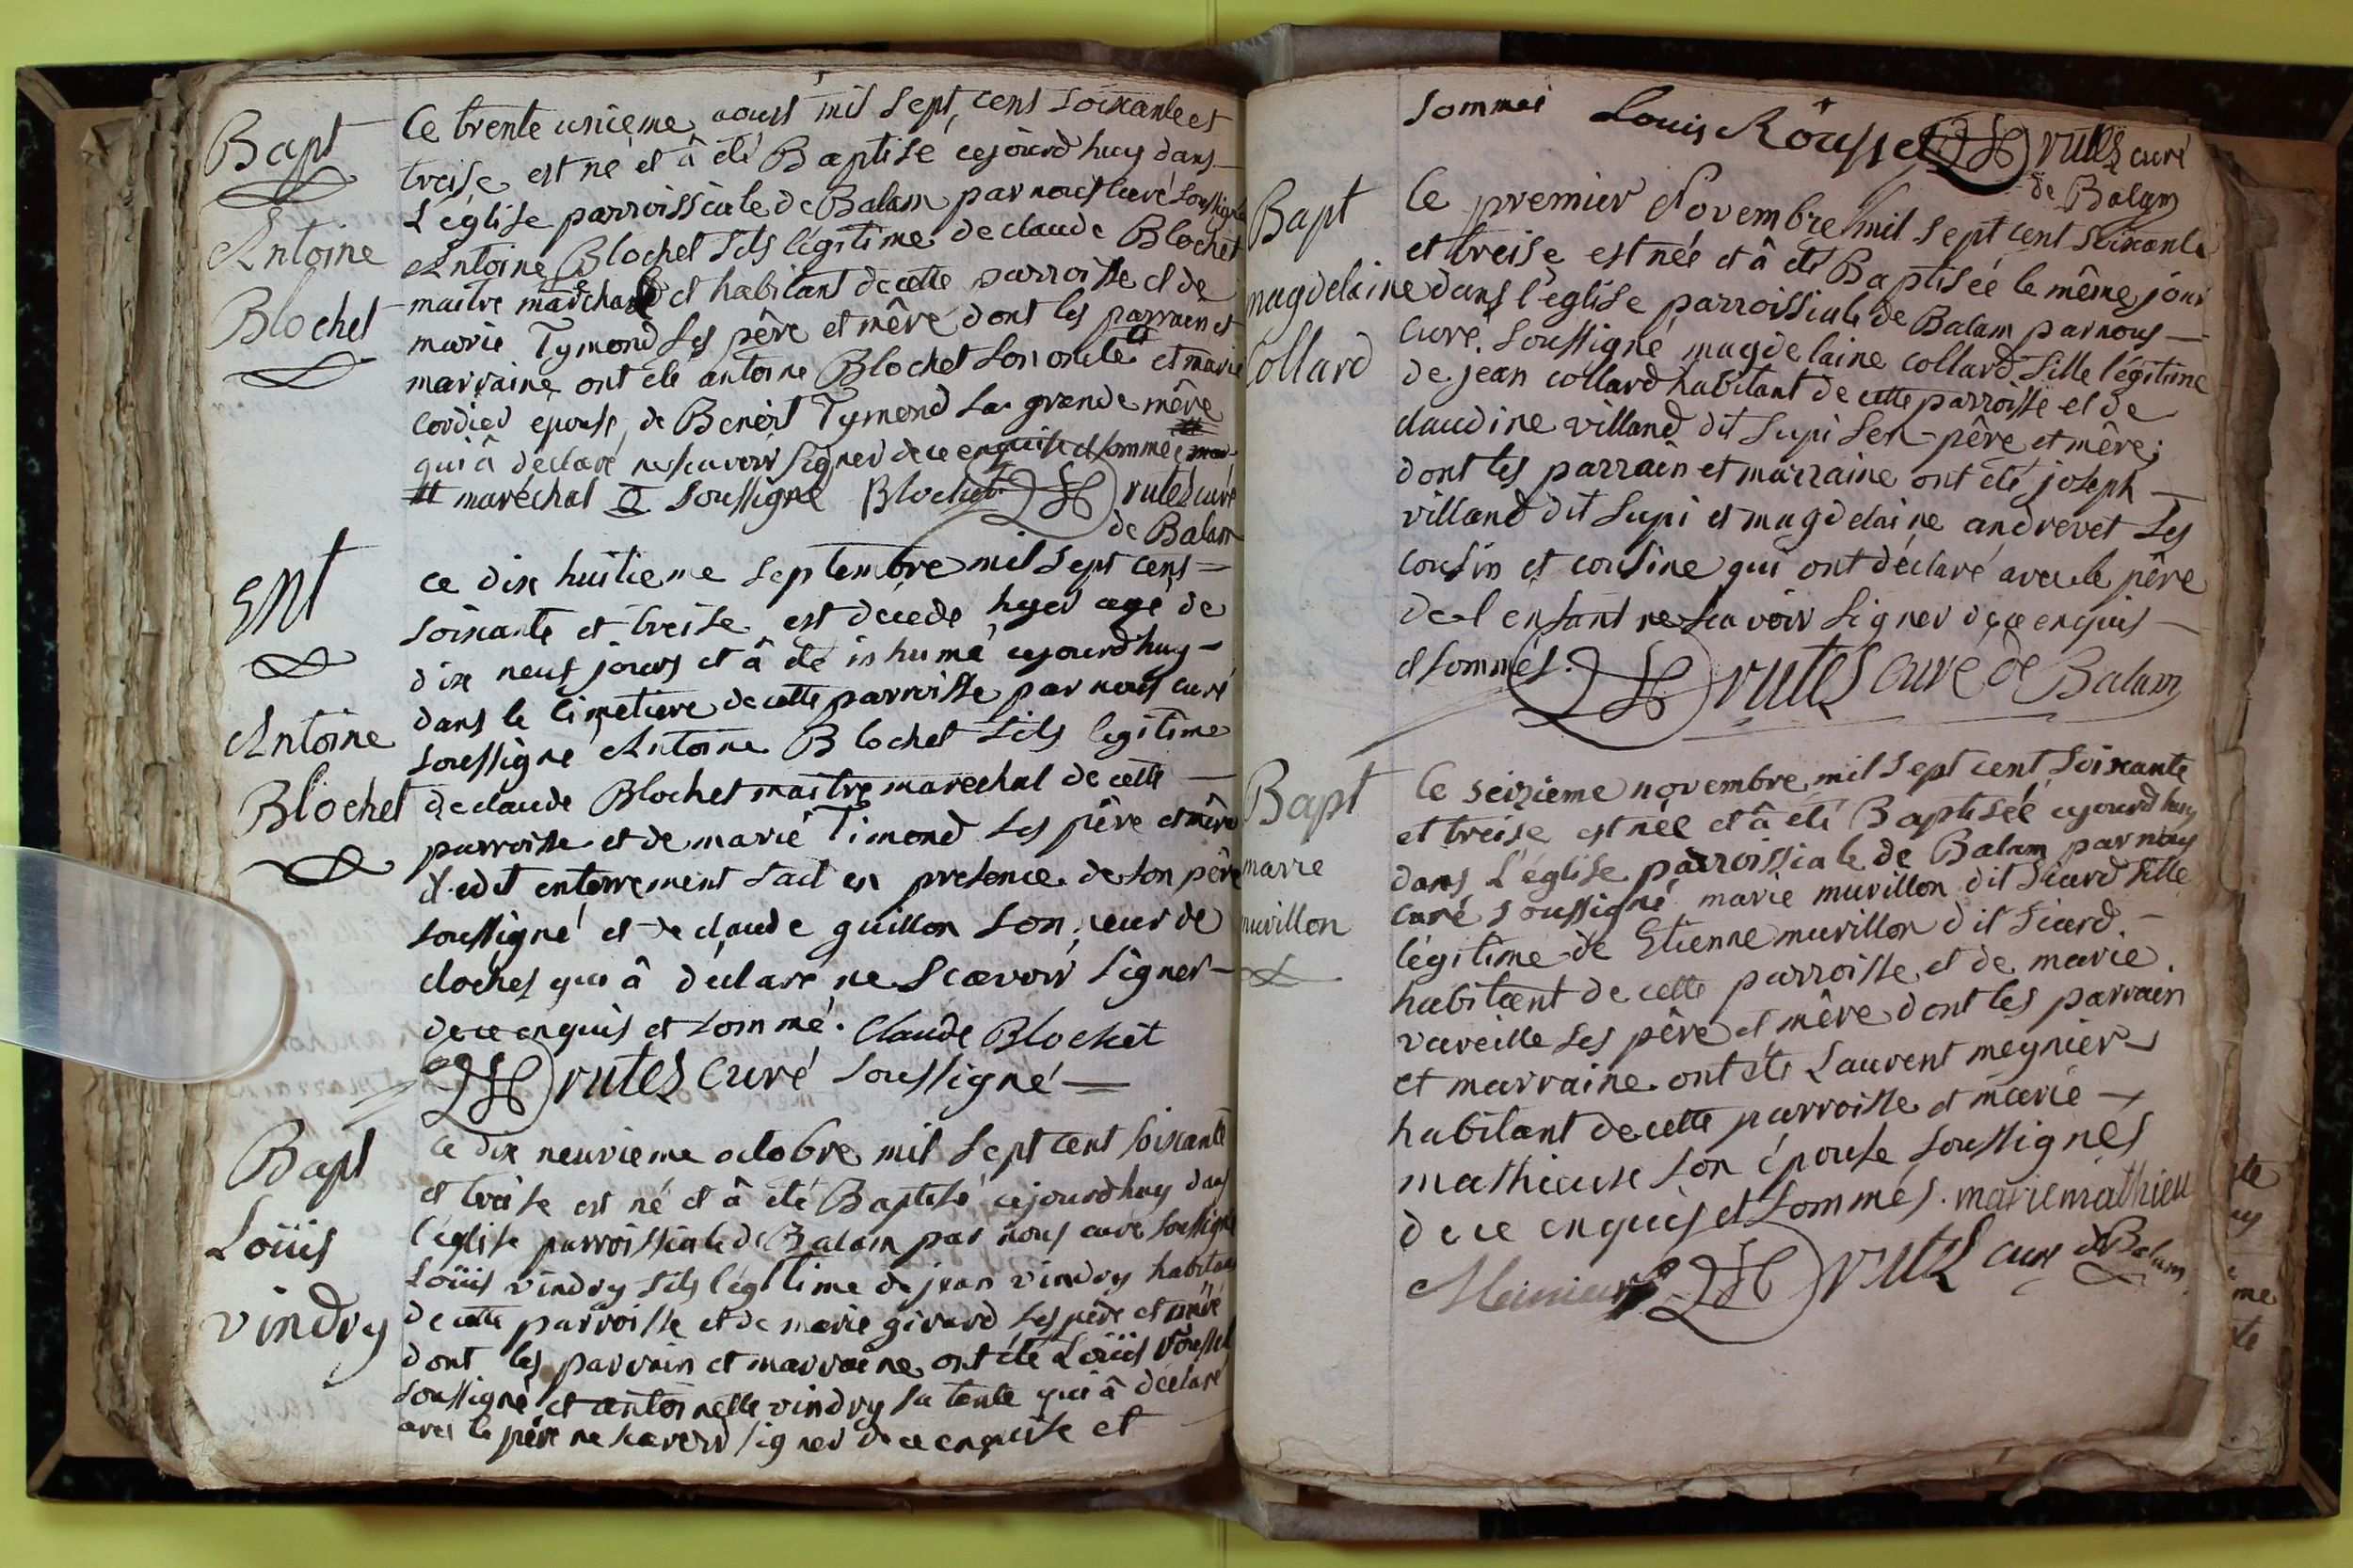 Bapt
Antoine
Blochet
Ce trente unieme aoust mil sept cens soixante et
treise est né et â été Baptisé cejourd'huy dans
L'église parroissiale de Balam par nous curé soussigné
Antoine Blochet fils légitime de claude Blochet
maitre maréchal et habitant de cette parroisse et de
marie Tymond ses pêre et mêre dont les parrain et
marraine ont été antoine Blochet son oncle # et marie
cordier epouse de Benoit Tymond sa grande mêre
qui â déclaré ne scavoir signer de ce enquise et sommé
# maréchal soussigné Blochet rutes curé
de Balam
Ent
Antoine
Blochet
ce dix huitieme septembre mil sept cens
soixante et treise est décedé hyer agé de
dix neuf jours et â été inhumé cejourd'huy
dans le cimetiere de cette parroisse par nous curé
soussigné Antoine Blochet fils legitime
de claude Blochet maitre marechal de cette
parroisse et de marie Timond ses pêre et mêre
ledit enterrement fait en presence de son pêre
soussigné et de claude guillon sonneur de
cloches qui â déclaré ne scavoir signer
de ce enquis et sommé. Claude Blochet
rutes curé soussigné
Bapt
Loüis
vindry
ce dix neuvieme octobre mil sept cent soixante
et treise est né et â été Baptisé cejourd'huy dans
l'église parroissiale de Balam par nous curé soussigné
Loüis vindry fils légitime de jean vindry habitant
de cette parroisse et de marie girard ses pêre et mêre
dont les parrain et marraine ont été Loüis rousset
soussigné et antoinette vindry sa tente qui â déclaré
avec le pêre ne scavoir signer de ce enquise et
sommés Louis Rousset rutes curé
de Balam
Bapt
magdelaine
Collard
Ce premier Novembre mil sept cent soixante
et treise est née et â été Baptisée le même jour
dans l'église parroissiale de Balam par nous
curé soussigné magdelaine collard fille légitime
de jean collard habitant de cette parroisse et de
claudine villand dit supi ses pêre et mêre
dont les parrain et marraine ont été joseph
villand dit supi et magdelaine andrevet ses
cousin et cousine qui ont déclaré avec le pêre
de l'enfant ne scavoir signer de ce enquis
et sommés. rutes curé de Balam
Bapt
marie
murillon
Ce seizieme novembre mil sept cent soixante
et treise est née et â été Baptisée cejourd'huy
dans L'église parroissiale de Balam par nous
curé soussigné marie murillon dit siard fille
légitime de Etienne murillon dit siard
habitant de cette parroisse et de marie
vareille ses pêre et mêre dont les parrain
et marraine ont été Laurent meynier
habitant de cette parroisse et marie
mathieuse son épouse soussignés
de ce enquis et sommés. marie mathieu
Meinier rutes curé de Balam